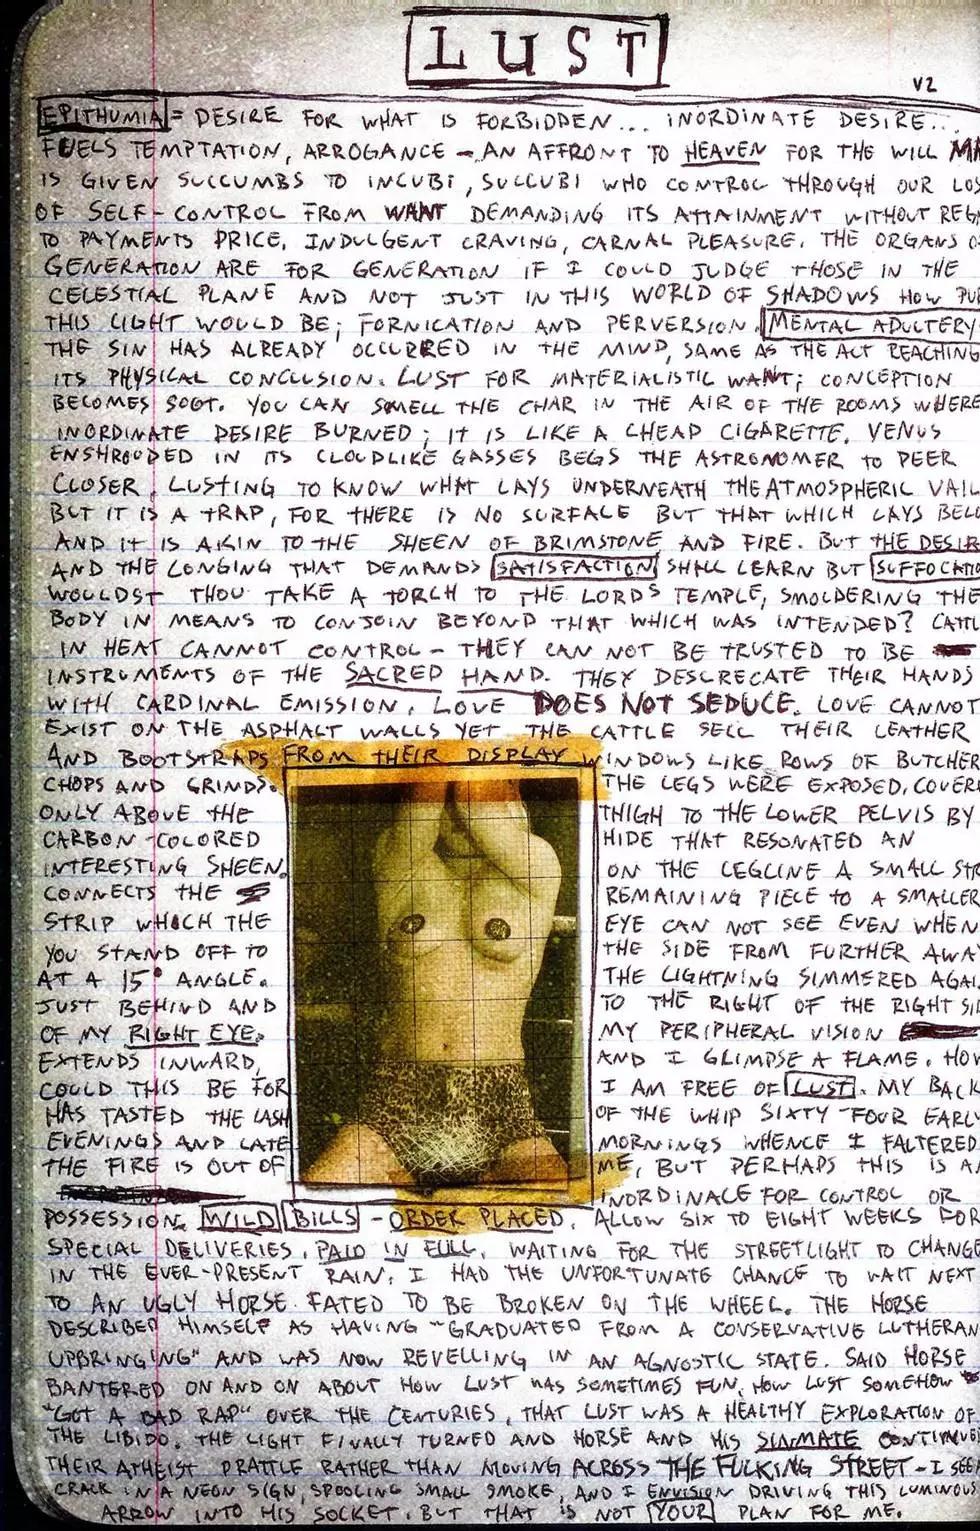 LUST
V2
EPITHUMIA = DESIRE FOR WHAT IS FORBIDDEN... INORDINATE DESIRE...
FUELS TEMPTATION, ARROGANCE - AN AFFRONT TO HEAVEN FOR THE WILL MA
IS GIVEN SUCCUMBS TO INCUBI, SUCCUBI WHO CONTROL THROUGH OUR LOS
OF SELF-CONTROL FROM WANT DEMANDING ITS ATTAINMENT WITHOUT REGA
TO PAYMENTS PRICE. INDULGENT CRAVING, CARNAL PLEASURE. THE ORGANS O
GENERATION ARE FOR GENERATION IF I COULD JUDGE THOSE IN THE
CELESTIAL PLANE AND NOT JUST IN THIS WORLD OF SHADOWS HOW PU
THIS LIGHT WOULD BE; FORNICATION AND PERVERSION. MENTAL ADULTERY
THE SIN HAS ALREADY OCCURRED IN THE MIND, SAME AS THE ACT REACHING
ITS PHYSICAL CONCLUSION. LUST FOR MATERIALISTIC WANT; CONCEPTION
BECOMES SOOT. YOU CAN SMELL THE CHAR IN THE AIR OF THE ROOMS WHERE
INORDINATE DESIRE BURNED; IT IS LIKE A CHEAP CIGARETTE. VENUS
ENSHROUDED IN ITS CLOUDLIKE GASSES BEGS THE ASTRONOMER TO PEER
CLOSER, LUSTING TO KNOW WHAT LAYS UNDERNEATH THE ATMOSPHERIC VAIL
BUT IT IS A TRAP, FOR THERE IS NO SURFACE BUT THAT WHICH LAYS BELO
AND IT IS AKIN TO THE SHEEN OF BRIMSTONE AND FIRE. BUT THE DESIR
AND THE LONGING THAT DEMANDS SATISFACTION SHALL LEARN BUT SUFFOCATIO
WOULDST THOU TAKE A TORCH TO THE LORDS TEMPLE, SMOLDERING THE
BODY IN MEANS TO CONJOIN BEYOND THAT WHICH WAS INTENDED? CATTL
IN HEAT CANNOT CONTROL - THEY CAN NOT BE TRUSTED TO BE
INSTRUMENTS OF THE SACRED HAND. THEY DESCRECATE THEIR HANDS
WITH CARDINAL EMISSION. LOVE DOES NOT SEDUCE. LOVE CANNOT
EXIST ON THE ASPHALT WALLS YET THE CATTLE SELL THEIR LEATHER
AND BOOTSTRAPS FROM THEIR DISPLAY WINDOWS LIKE ROWS OF BUTCHER
CHOPS AND GRINDS. THE LEGS WERE EXPOSED, COVER
ONLY ABOVE THE THIGH TO THE LOWER PELVIS BY
CARBON-COLORED HIDE THAT RESONATED AN
INTERESTING SHEEN. ON THE LEGLINE A SMALL STR
CONNECTS THE REMAINING PIECE TO A SMALLER
STRIP WHICH THE EYE CAN NOT SEE EVEN WHEN
YOU STAND OFF TO THE SIDE FROM FURTHER AWA
AT A 15° ANGLE. THE LIGHTNING SIMMERED AGAI
JUST BEHIND AND TO THE RIGHT OF THE RIGHT SI
OF MY RIGHT EYE. MY PERIPHERAL VISION
EXTENDS INWARD, AND I GLIMPSE A FLAME. HOW
COULD THIS BE FOR I AM FREE OF LUST. MY BACK
HAS TASTED THE LASH OF THE WHIP SIXTY-FOUR EARLY
EVENINGS AND LATE MORNINGS WHENCE I FALTERED
THE FIRE IS OUT OF ME, BUT PERHAPS THIS IS A
INORDINACE FOR CONTROL OR
POSSESSION. WILD BILLS - ORDER PLACED. ALLOW SIX TO EIGHT WEEKS FOR
SPECIAL DELIVERIES. PAID IN FULL. WAITING FOR THE STREETLIGHT TO CHANGE
IN THE EVER-PRESENT RAIN. I HAD THE UNFORTUNATE CHANCE TO WAIT NEXT
TO AN UGLY HORSE FATED TO BE BROKEN ON THE WHEEL. THE HORSE
DESCRIBED HIMSELF AS HAVING "GRADUATED FROM A CONSERVATIVE LUTHERAN
UPBRINGING" AND WAS NOW REVELLING IN AN AGNOSTIC STATE. SAID HORSE
BANTERED ON AND ON ABOUT HOW LUST WAS SOMETIMES FUN, HOW LUST SOMEHOW
"GOT A BAD RAP" OVER THE CENTURIES, THAT LUST WAS A HEALTHY EXPLORATION OF
THE LIBIDO. THE LIGHT FINALLY TURNED AND HORSE AND HIS SINMATE CONTINUED
THEIR ATHEIST PRATTLE RATHER THAN MOVING ACROSS THE FUCKING STREET - I SEE
CRACK IN A NEON SIGN, SPOOLING SMALL SMOKE, AND I ENVISION DRIVING THIS LUMINOUS
ARROW INTO HIS SOCKET. BUT THAT IS NOT YOUR PLAN FOR ME.